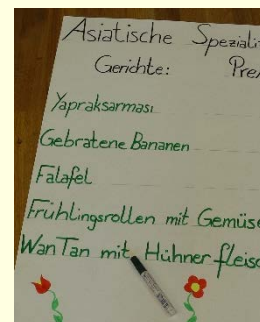 Asiatische Speziali
Gerichte: Pre
Yapraksarması
Gebratene Bananen
Falafel
Frühlingsrollen mit Gemüse
WanTan mit Hühnerfleisc